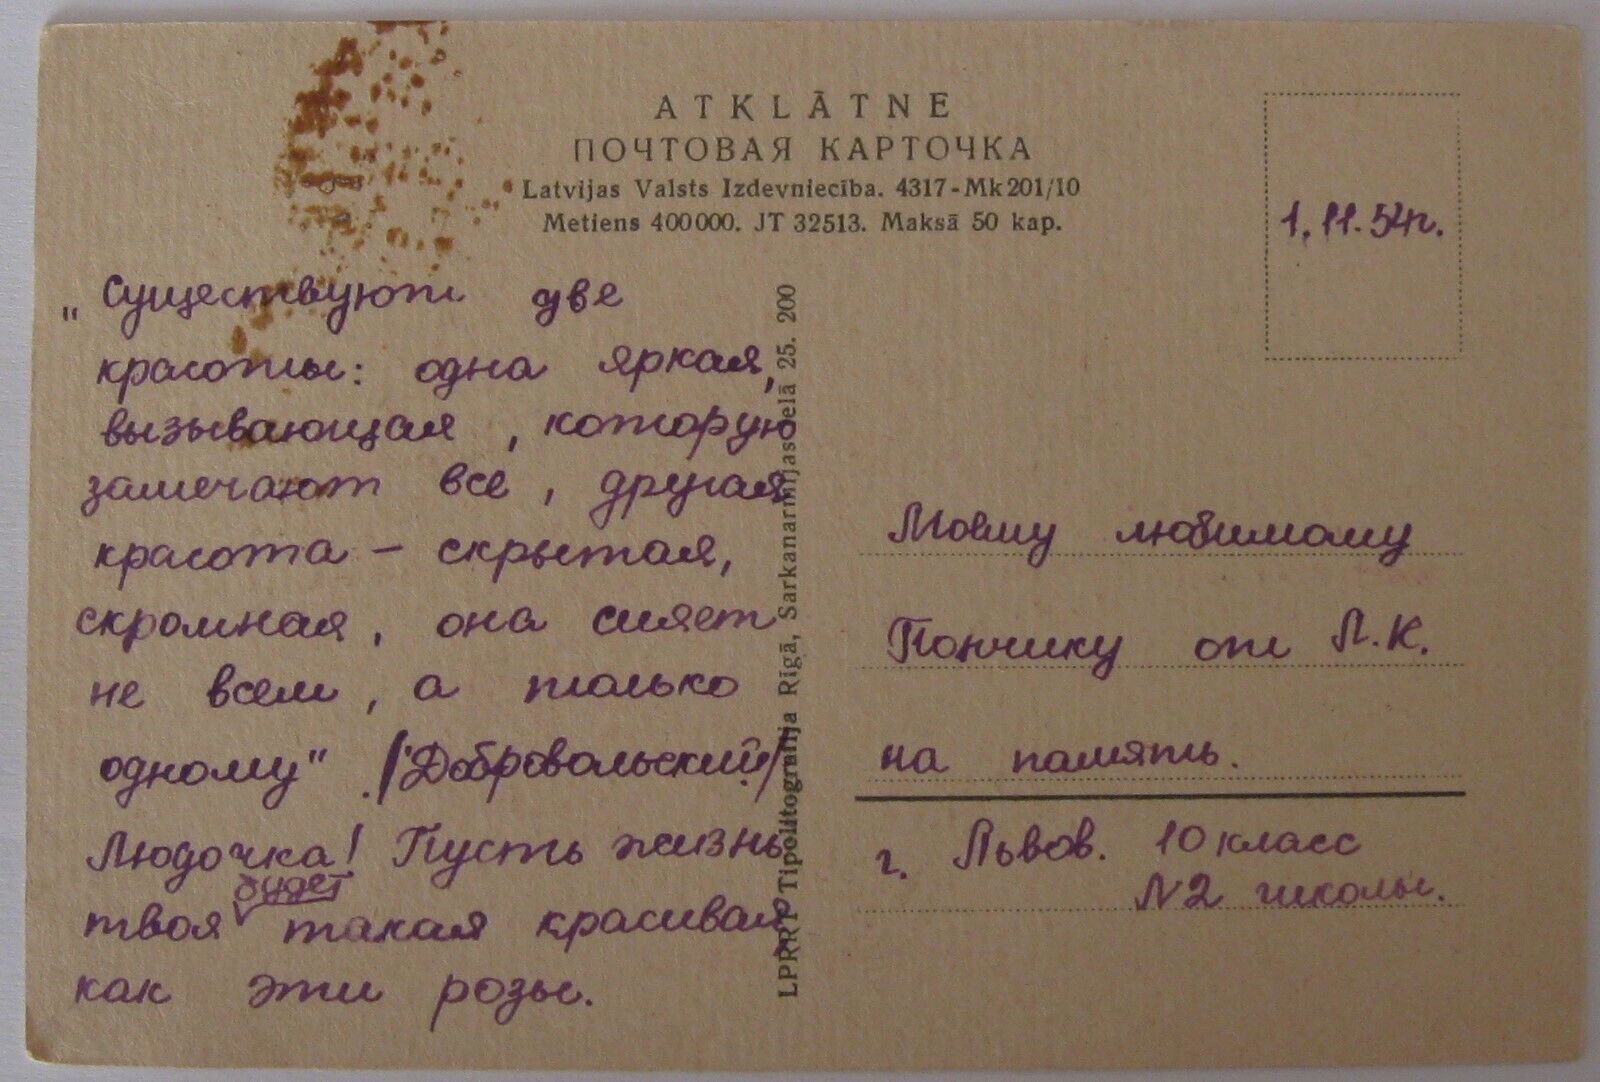 ATKLĀTNE
ПОЧТОВАЯ КАРТОЧКА
Latvijas Valsts Izdevniecība. 4317-Mk 201/10
Metiens 400000. JT 32513. Maksā 50 kap.
1.11.54г.
„Существуют две
красоты: одна яркая,
вызывающая, которую
замечают все, другая
красота – скрытая,
скромная, она сияет
не всем, а только
одному". /Добровольский/
Людочка! Пусть жизнь
будет
твоя такая красивая,
как эти розы.
LPRRT Tipolitografija Rīgā, Sarkanarmijas ielā 25. 200
Моему любимому
Пончику от Л.К.
на память.
г. Львов. 10 класс
N2 школы.